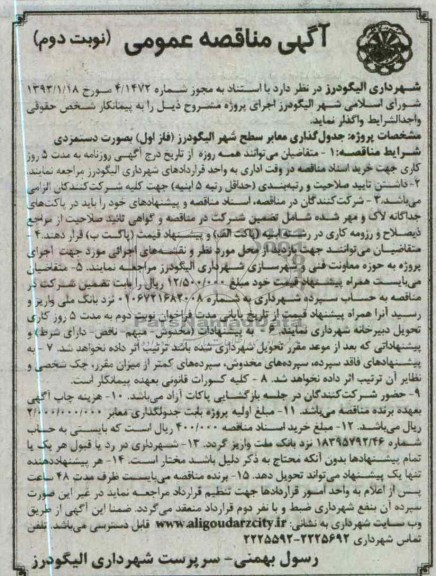 آگهی مناقصه عمومی (نوبت دوم)
شهرداری الیگودرز در نظر دارد با استناد به مجوز شماره ۴/۱۴۷۲ مورخ ۱۳۹۳/۱/۱۸
شورای اسلامی شهر الیگودرز اجرای پروژه مشروح ذیل را به پیمانکار شخص حقوقی
واجدالشرایط واگذار نماید.
مشخصات پروژه: جدول‌گذاری معابر سطح شهر الیگودرز (فاز اول) بصورت دستمزدی
شرایط مناقصه: ۱- متقاضیان می‌توانند همه روزه از تاریخ درج آگهی روزنامه به مدت ۵ روز
کاری جهت خرید اسناد مناقصه در وقت اداری به واحد قراردادهای شهرداری الیگودرز مراجعه نمایند.
۲- داشتن تایید صلاحیت و رتبه‌بندی (حداقل رتبه ۵ ابنیه) جهت کلیه شرکت‌کنندگان الزامی
می‌باشد. ۳- شرکت‌کنندگان در مناقصه، اسناد مناقصه و پیشنهادهای خود را باید در پاکت‌های
جداگانه لاک و مهر شده شامل تضمین شرکت در مناقصه و گواهی تائید صلاحیت از مراجع
ذیصلاح و رزومه کاری در رشته ابنیه (پاکت الف) و پیشنهاد قیمت (پاکت ب) قرار دهند. ۴-
متقاضیان می‌توانند جهت بازدید از محل مورد نظر و نقشه‌های اجرائی مورد جهت اجرای
پروژه به حوزه معاونت فنی و شهرسازی شهرداری الیگودرز مراجعه نمایند. ۵- متقاضیان
می‌بایست همراه پیشنهاد قیمت خود مبلغ ۱۲/۵۰۰/۰۰۰ ریال را بابت تضمین شرکت در
مناقصه به حساب سپرده شهرداری به شماره نزد بانک ملی واریز و
رسید آنرا همراه پیشنهاد قیمت از تاریخ پایانی مدت فراخوان نوبت دوم به مدت ۵ روز کاری
تحویل دبیرخانه شهرداری نمایند. ۶- به پیشنهادات (مخدوش- مبهم- ناقص- دارای شرط) و
پیشنهاداتی که بعد از موعد مقرر تحویل شهرداری شده باشد ترتیب اثر داده نخواهد شد. ۷- به
پیشنهادهای فاقد سپرده، سپرده‌های مخدوش، سپرده‌های کمتر از میزان مقرر، چک شخصی و
نظایر آن ترتیب اثر داده نخواهد شد. ۸- کلیه کسورات قانونی بعهده پیمانکار است.
۹- حضور شرکت‌کنندگان در جلسه بازگشایی پاکات آزاد می‌باشد. ۱۰- هزینه چاپ آگهی
بعهده برنده مناقصه می‌باشد. ۱۱- مبلغ اولیه پروژه بابت جدولگذاری معابر ۲/۰۰۰/۰۰۰/۰۰۰
ریال می‌باشد. ۱۲- مبلغ خرید اسناد مناقصه ۴۰۰/۰۰۰ ریال است که بایستی به حساب
شماره ۱۸۳۹۵۷۹۲/۴۶ نزد بانک ملت واریز گردد. ۱۳- شهرداری در رد یا قبول هر یک یا
تمام پیشنهادها بدون آنکه محتاج به ذکر دلیل باشد مختار است. ۱۴- هر پیشنهاددهنده
تنها یک پیشنهاد می‌تواند تحویل دهد. ۱۵- برنده مناقصه می‌بایست ظرف مدت ۴۸ ساعت
پس از اعلام به واحد امور قراردادها جهت تنظیم قرارداد مراجعه نماید در غیر این صورت
سپرده آن بنفع شهرداری ضبط و با نفر دوم قرارداد منعقد می‌گردد. ضمنا این آگهی از طریق
وب سایت شهرداری به نشانی: www.aligoudarzcity.ir قابل دسترسی می‌باشد. تلفن
تماس شهرداری ۲۲۲۵۶۹۲-۲۲۲۵۵۹۲
رسول بهمنی- سرپرست شهرداری الیگودرز